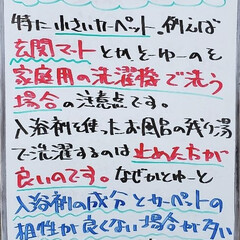 特に小さいカーペット。例えば
玄関マットとかとゆーのを
家庭用の洗濯機で洗う
場合の注意点です。
入浴剤を使ったお風呂の残り湯
で洗濯するのは止めた方が
良いのです。なぜかとゆーと
入浴剤の成分とカーペットの
相性が良くない場合が多い